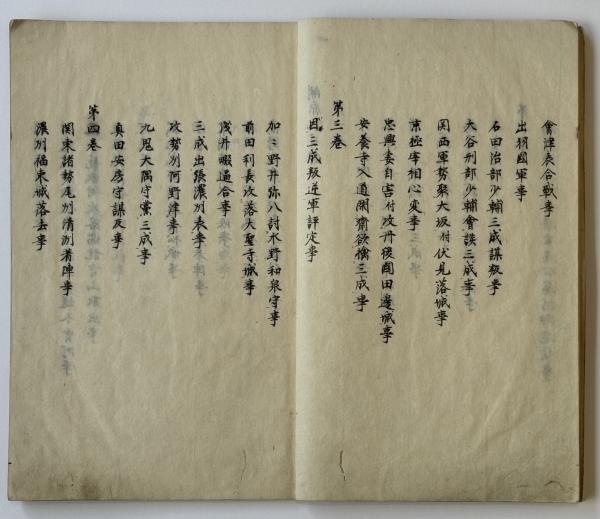 會津表合戦事
出羽國軍事
石田治部少輔三成謀叛事
大谷刑部少輔會談三成事
関西軍勢聚大坂付伏見落城事
京極宰相心変事
忠興妻自害付攻丹後國田邊城事
安養寺入道聞齋欲擒三成事
第三巻
因三成叛逆軍評定事
加々野井弥八討水野和泉守事
前田利長攻落大聖寺城事
浅井畷逼合事
三成出張濃刕表事
攻勢刕阿野津事
九鬼大隅守黨三成事
真田安房守謀反事
第四巻
関東諸勢尾刕清洲着陣事
濃刕福束城落去事